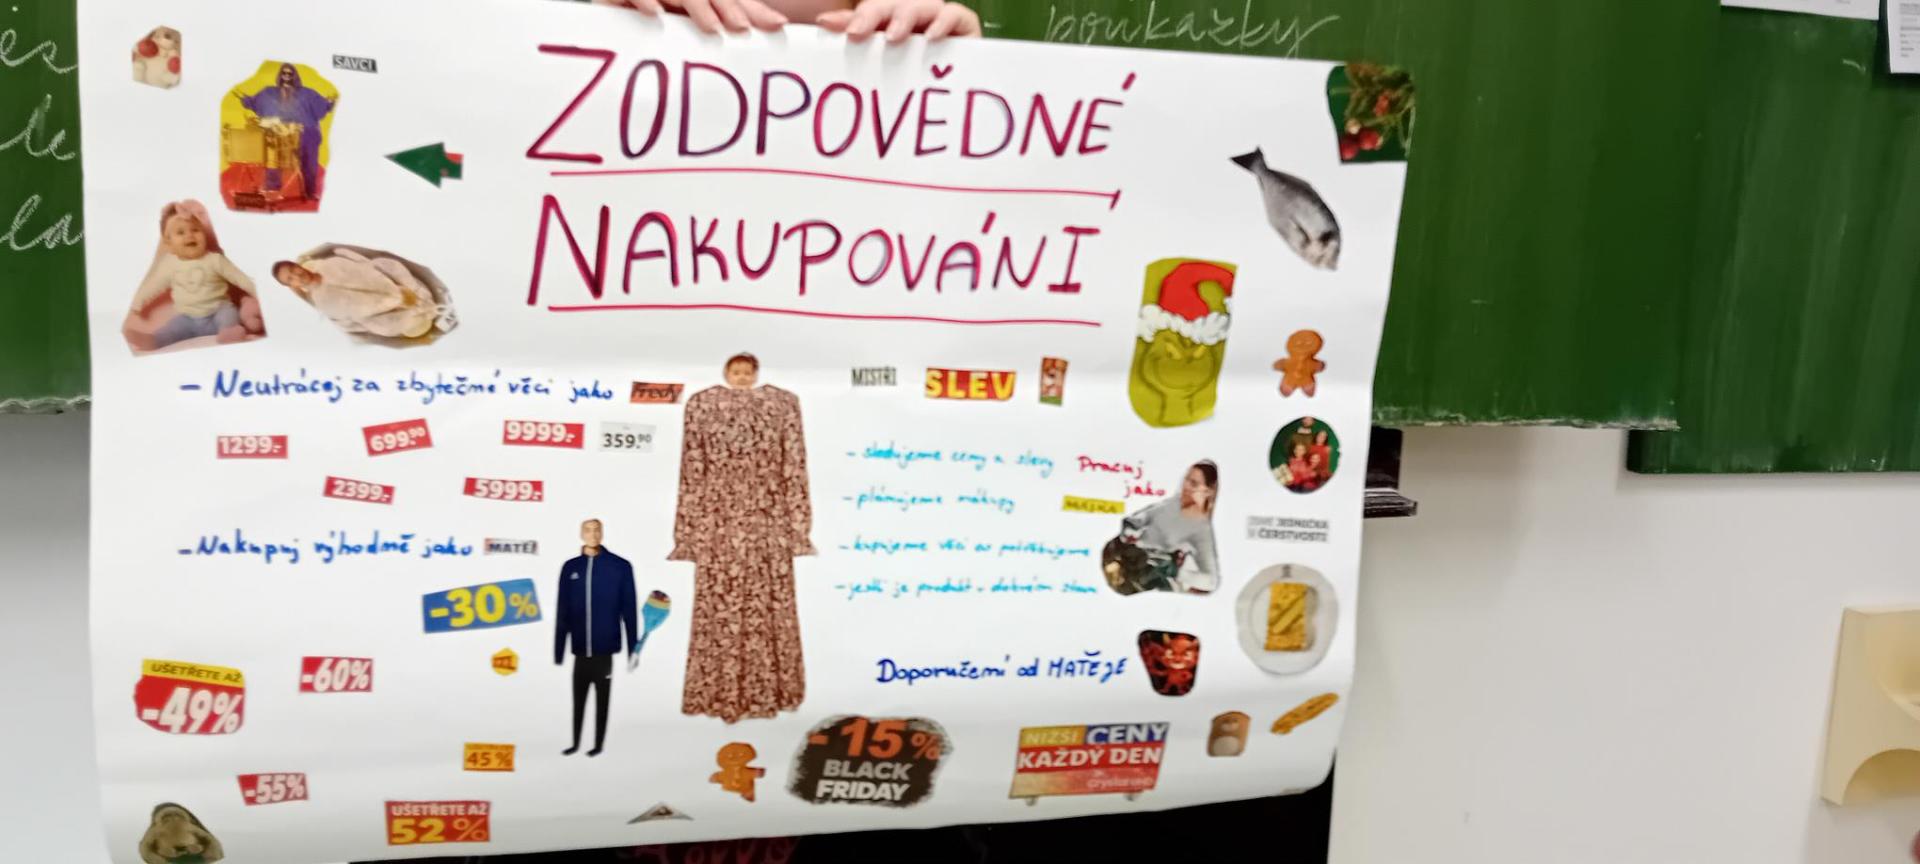 poukazky
SAVCI
ZODPOVĚDNÉ
NAKUPOVÁNÍ
- Neutrácej za zbytečné věci jako Fredy
1299.-
699.90
9999.-
359.90
2399.-
5999.-
- Nakupuj výhodně jako MATĚJ
-30%
UŠETŘETE AŽ
-49%
-60%
45%
-55%
UŠETŘETE AŽ
52%
MISTŘI SLEV
- sledujeme ceny a slevy
- plánujeme nákupy
- kupujeme věci co potřebujeme
- jestli je produkt v dobrém stavu
Pracuj
jako
JEDNIČKA
V ČERSTVOSTI
Doporučení od MATĚJE
-15%
BLACK
FRIDAY
NIŽŠÍ CENY
KAŽDÝ DEN